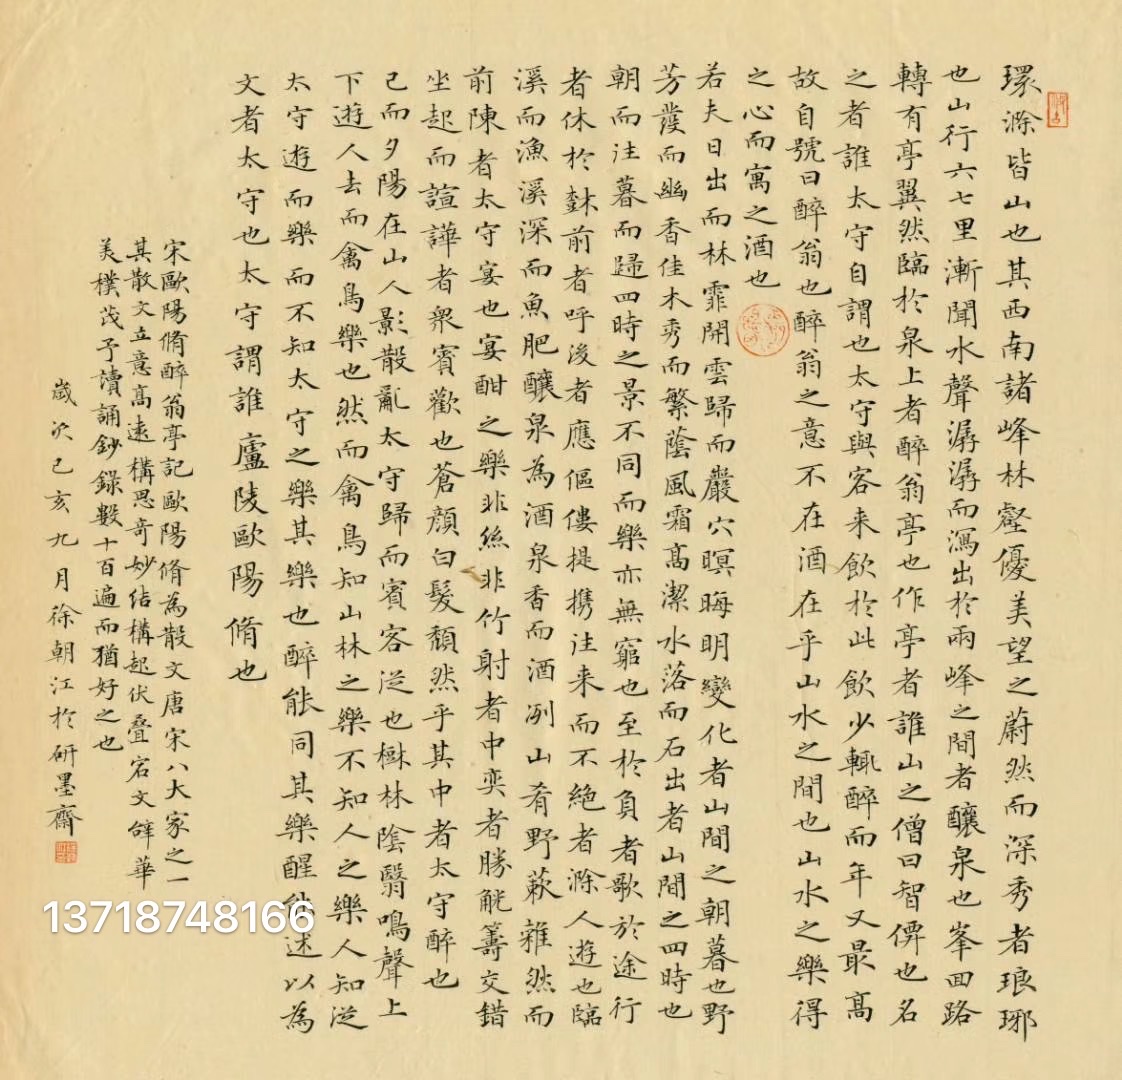 環滁皆山也其西南諸峰林壑優美望之蔚然而深秀者琅琊
也山行六七里漸聞水聲潺潺而瀉出於兩峰之間者釀泉也峯回路
轉有亭翼然臨於泉上者醉翁亭也作亭者誰山之僧曰智僊也名
之者誰太守自謂也太守與客来飲於此飲少輒醉而年又最高
故自號曰醉翁也醉翁之意不在酒在乎山水之間也山水之樂得
之心而寓之酒也
若夫日出而林霏開雲歸而巖穴暝晦明變化者山間之朝暮也野
芳發而幽香佳木秀而繁蔭風霜高潔水落而石出者山間之四時也
朝而往暮而歸四時之景不同而樂亦無窮也至於負者歌於途行
者休於樹前者呼後者應傴僂提携往来而不絕者滁人遊也臨
溪而漁溪深而魚肥釀泉為酒泉香而酒冽山肴野蔌雜然而
前陳者太守宴也宴酣之樂非絲非竹射者中奕者勝觥籌交錯
坐起而諠譁者衆賓歡也蒼顏白髮頹然乎其中者太守醉也
已而夕陽在山人影散亂太守歸而賓客從也樹林陰翳鳴聲上
下遊人去而禽鳥樂也然而禽鳥知山林之樂不知人之樂人知從
太守遊而樂而不知太守之樂其樂也醉能同其樂醒能述以為
文者太守也太守謂誰廬陵歐陽脩也
宋歐陽脩醉翁亭記歐陽脩為散文唐宋八大家之一
其散文立意高遠構思奇妙結構起伏叠宕文辭華
美樸茂予讀誦鈔錄數十百遍而猶好之也
歲次己亥九月徐朝江於研墨齋
13718748166